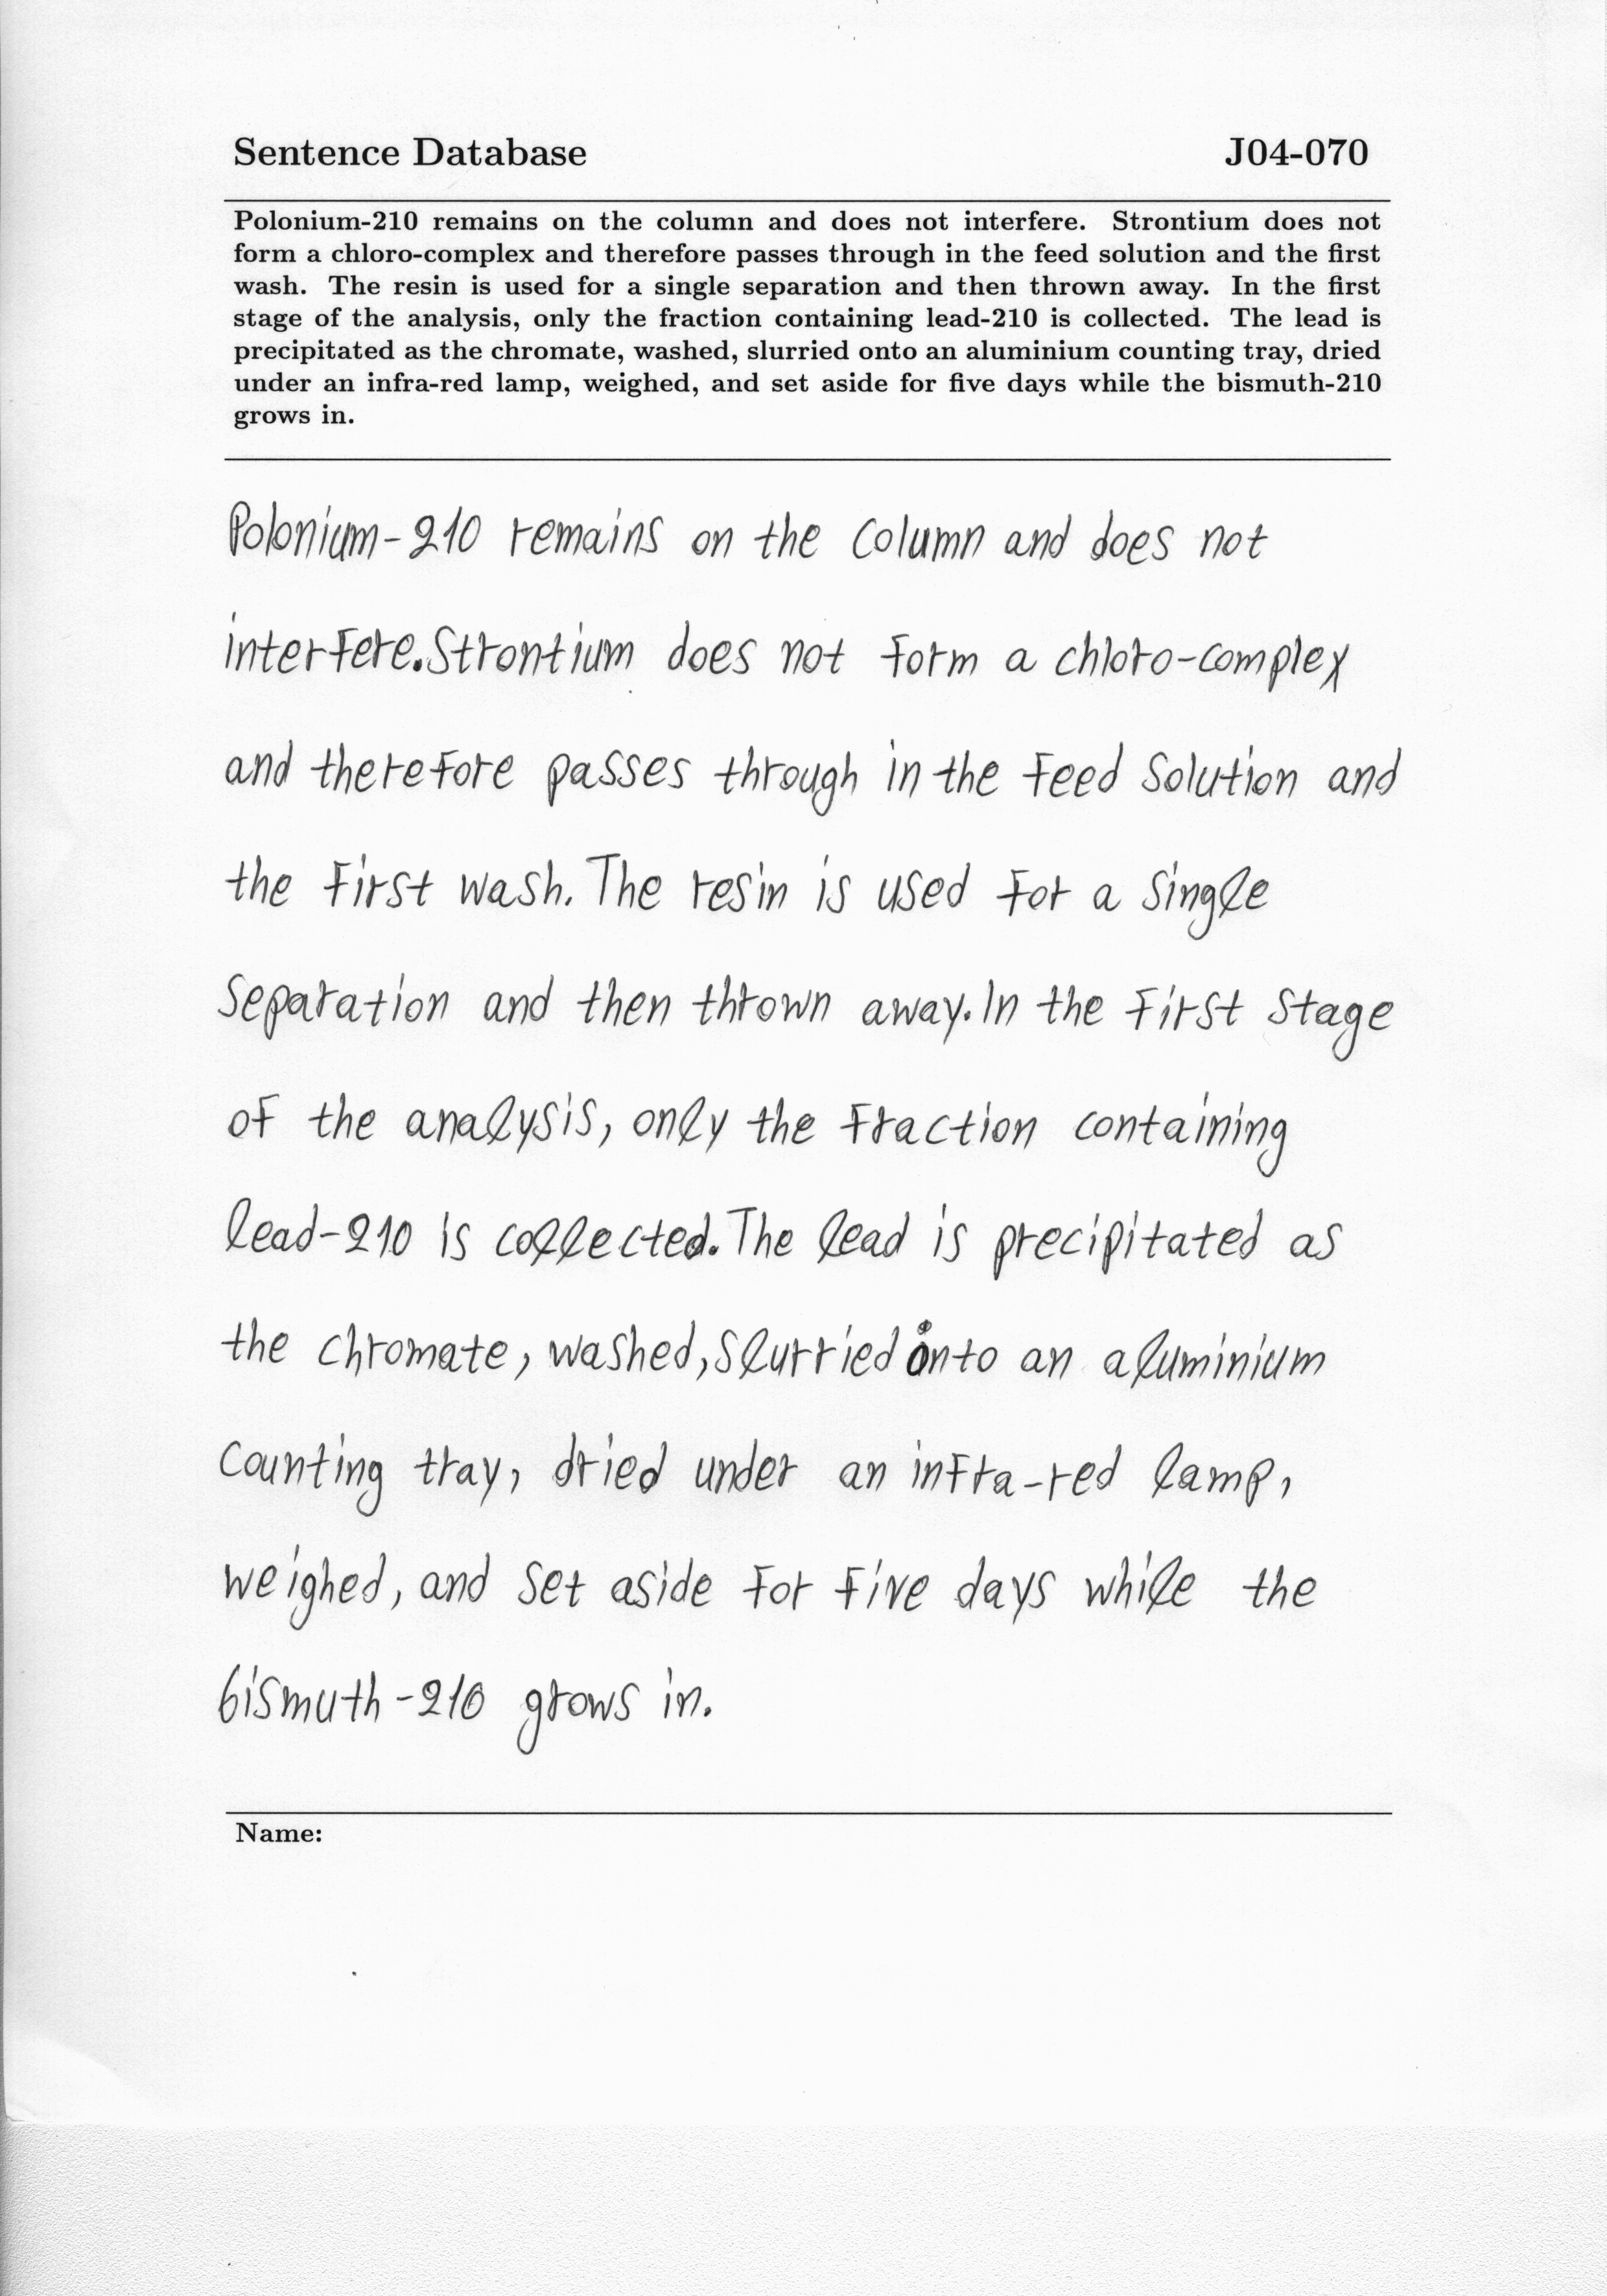 Sentence Database J04-070
Polonium-210 remains on the column and does not interfere. Strontium does not
form a chloro-complex and therefore passes through in the feed solution and the first
wash. The resin is used for a single separation and then thrown away. In the first
stage of the analysis, only the fraction containing lead-210 is collected. The lead is
precipitated as the chromate, washed, slurried onto an aluminium counting tray, dried
under an infra-red lamp, weighed, and set aside for five days while the bismuth-210
grows in.
Polonium-210 remains on the column and does not
interfere. Strontium does not form a chloro-complex
and therefore passes through in the feed solution and
the first wash. The resin is used for a single
separation and then thrown away. In the first stage
of the analysis, only the fraction containing
lead-210 is collected. The lead is precipitated as
the chromate, washed, slurried onto an aluminium
counting tray, dried under an infra-red lamp,
weighed, and set aside for five days while the
bismuth-210 grows in.
Name: